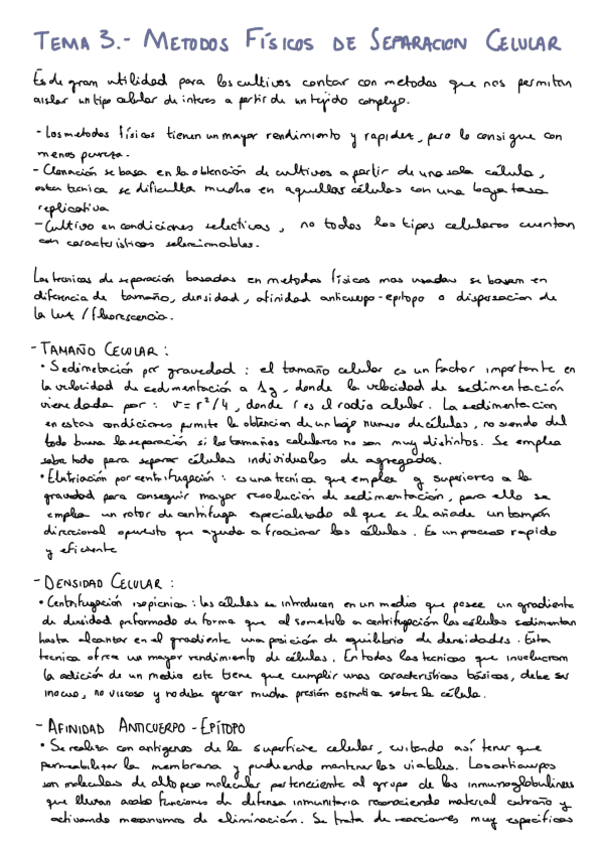 TEMA 3.- METODOS FÍSICOS DE SEPARACION CELULAR
Es de gran utilidad para los cultivos contar con metodos que nos permitan
aislar un tipo celular de interes a partir de un tejido complejo.
- Los metodos físicos tienen un mayor rendimiento y rapidez, pero lo consigue con
menos pureza.
- Clonación se basa en la obtención de cultivos a partir de una sola célula,
esta tecnica se dificulta mucho en aquellas células con una baja tasa
replicativa
- Cultivo en condiciones selectivas, no todos los tipos celulares cuentan
con características seleccionables.
Las tecnicas de separación basadas en metodos físicos mas usadas se basan en
diferencia de tamaño, densidad, afinidad anticuerpo-epitopo o dispersacion de
la luz / fluorescencia.
- TAMAÑO CELULAR:
• Sedimetación por gravedad: el tamaño celular es un factor importante en
la velocidad de sedimentación a 1g, donde la velocidad de sedimentación
viene dada por: v = r²/4, donde r es el radio celular. La sedimentacion
en estas condiciones permite la obtencion de un bajo numero de células, no siendo del
todo buena la separación si los tamaños celulares no son muy distintos. Se emplea
sobe todo para separar células individuales de agregados.
• Elutriación por centrifugación: es una tecnica que emplea g superiores a la
gravedad para conseguir mayor resolución de sedimentación, para ello se
emplea un rotor de centrifuga especializado al que se le añade un tampón
direccional opuesto que ayuda a fraccionar las células. Es un proceso rapido
y eficiente
- DENSIDAD CELULAR:
• Centrifugación isopicnica: las células se introducen en un medio que posee un gradiente
de densidad preformado de forma que al someterlo a centrifugación las células sedimentan
hasta alcantar en el gradiente una posición de equilibrio de densidades. Esta
tecnica ofrece un mayor rendimiento de células. En todas las tecnicas que involucran
la adición de un medio este tiene que cumplir unas caracteristicas básicas, debe ser
inocuo, no viscoso y no debe gerar mucha presión osmotica sobre la célula.
- AFINIDAD ANTICUERPO - EPÍTOPO
• Se realiza con antigenos de la superficie celular, evitando así tener que
permeabilizar la membrana y pudiendo mantenerlas viables. Los anticuerpos
son moleculas de alto peso molecular perteneciente al grupo de las inmunoglobulinas
que llevan acabo funciones de defensa inmunitaria reconociendo material extraño y
activando mecanismos de eliminación. Se trata de reacciones muy especificas